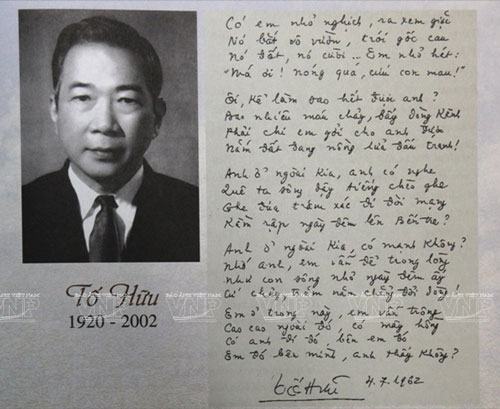 Có em nhỏ nghịch, ra xem giặc
Nó bắt vô vườn, trói gốc cau
Nó đốt, nó cười ... Em nhỏ hét:
"Má ơi! nóng quá, cứu con mau!"
Ôi, kể làm sao hết được anh?
Bao nhiêu máu chảy, đầy dòng kênh
Phải chi em gởi cho anh được
Nắm đất đang nồng lửa đấu tranh!
Anh ở ngoài kia, anh có nghe
Quê ta sông dậy tiếng chèo ghe
Ghe đưa trăm xác đi đòi mạng
Rầm rập ngày đêm lên Bến-tre?
Anh ở ngoài kia, có mạnh không?
Nhớ anh, em vẫn để trong lòng
Như con sông nhỏ ngày đêm ấy
Cứ chảy trăm năm chẳng đổi dòng!
Em ở trong này, em vẫn trông
Cao cao ngoài đó, có mây hồng
Có anh đi đó, bên em đó
Em đó bên mình, anh thấy không?
Tố Hữu 4.7.1962
Tố Hữu
1920 - 2002
BÁO ẢNH VIỆT NAM
VNP
BÁO ẢNH VIỆT NAM
VNP
BÁO ẢNH VIỆT NAM
VNP